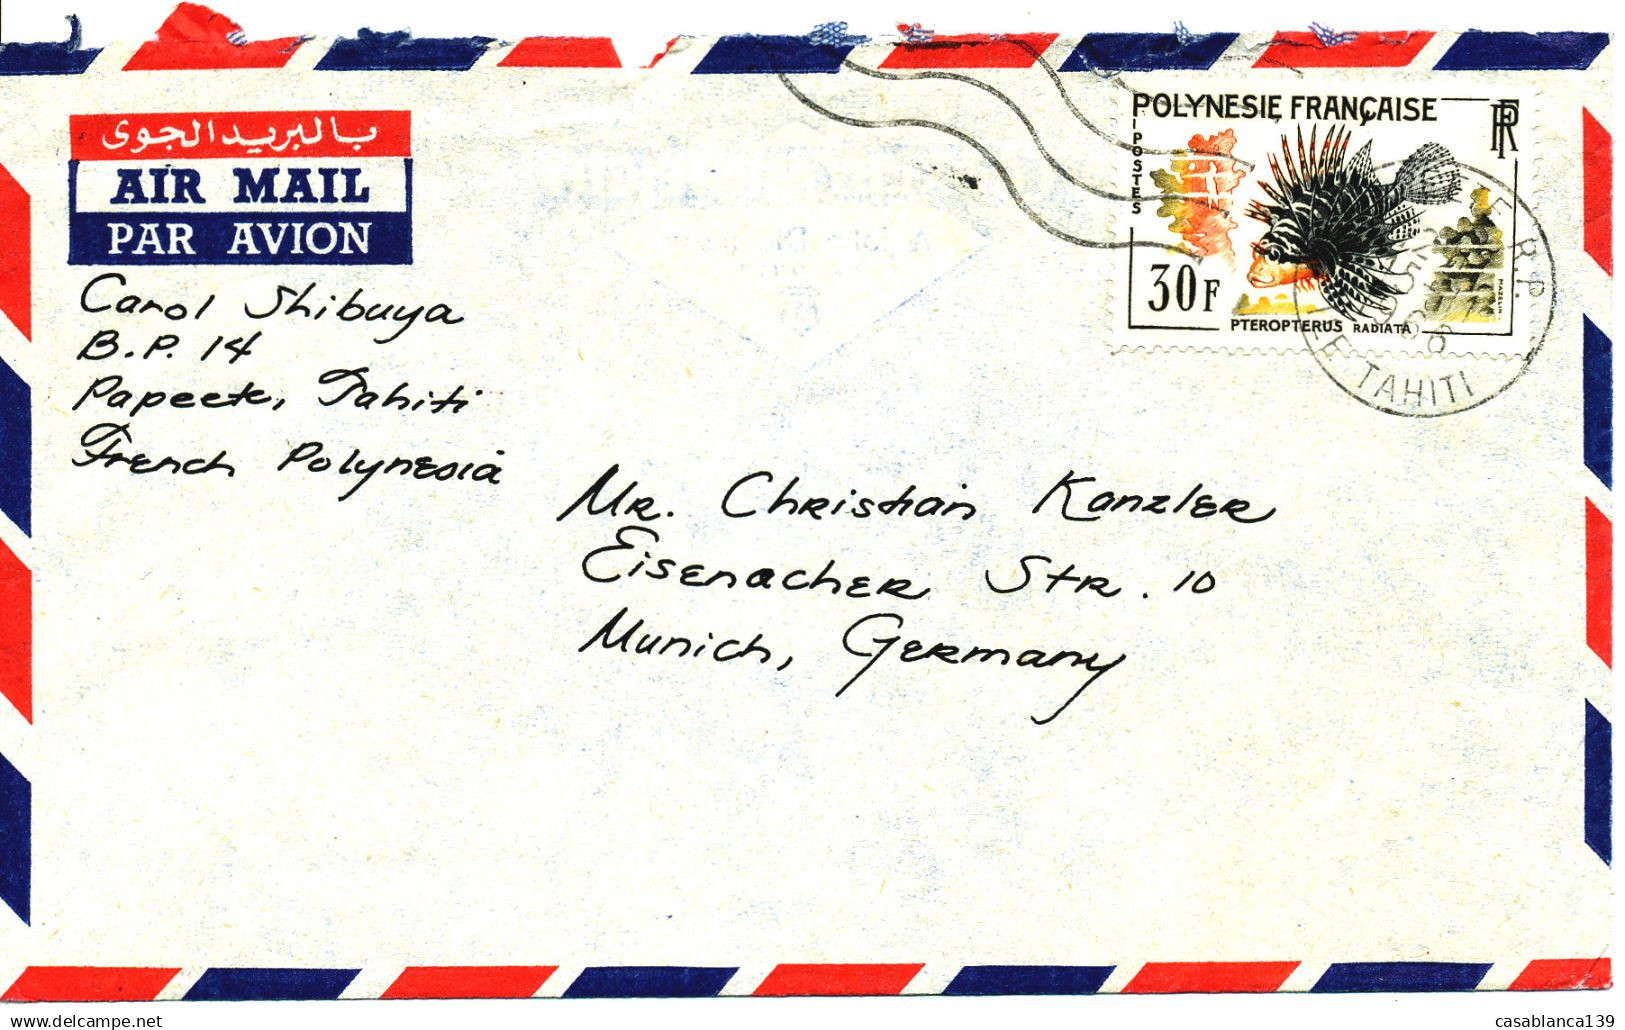 بالبريد الجوى
AIR MAIL
PAR AVION
Carol Shibuya
B.P. 14
Papeete, Tahiti
French Polynesia
POLYNESIE FRANÇAISE
RF
POSTES
30F
PTEROPTERUS RADIATA
MAZELIN
R.P.
1968
TAHITI
Mr. Christian Kanzler
Eisenacher Str. 10
Munich, Germany
casablanca139